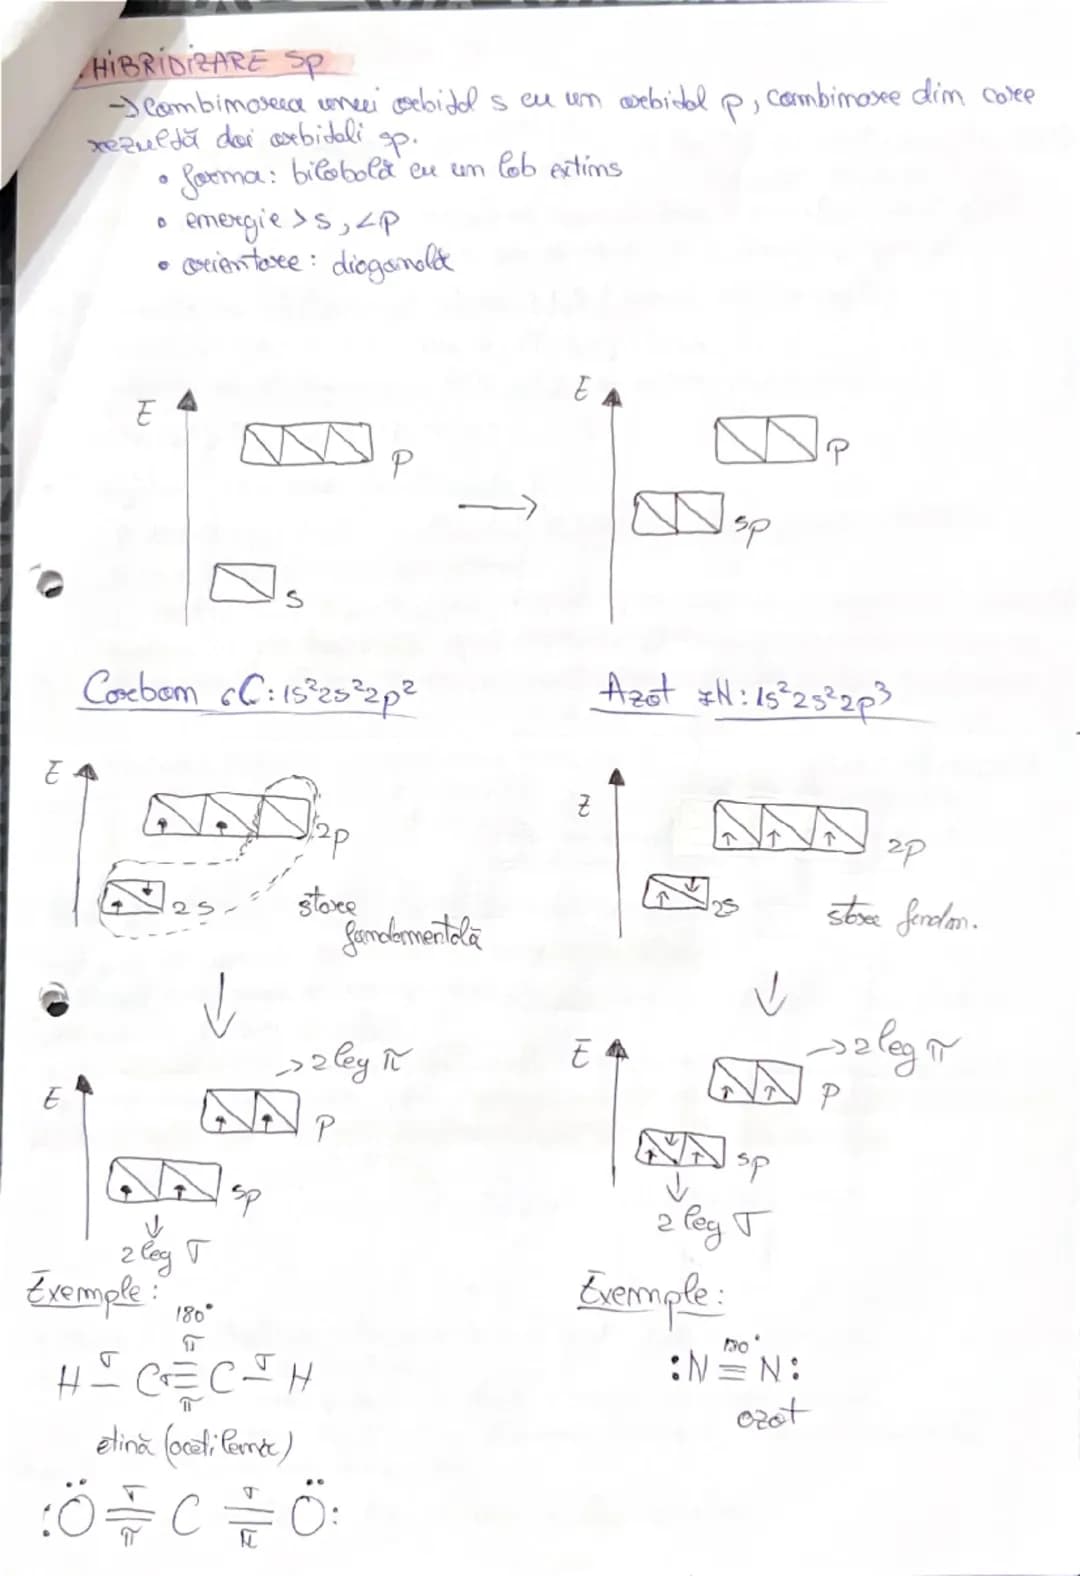 HIBRIDIZARE sp
→ Combinarea unui orbital s cu un orbital p, combinare din care
rezultă doi orbitali sp.
• forma: bilobală cu un lob extins
• energie > s, < p
• orientare: diagonală
E
p
s
→
E
p
sp
Carbon ₆C: 1s²2s²2p²
E
2p
2s
stare
fundamentală
↓
E
→ 2 leg π
p
sp
↓
2 leg σ
Exemple:
180°
π
H σ C σ≡ C σ H
π
etină (acetilenă)
:Ö σ= C σ= Ö:
π π
Azot ₇N: 1s²2s²2p³
E
2p
2s
stare fundam.
↓
E
→ 2 leg π
p
sp
↓
2 leg σ
Exemple:
180°
:N ≡ N:
azot